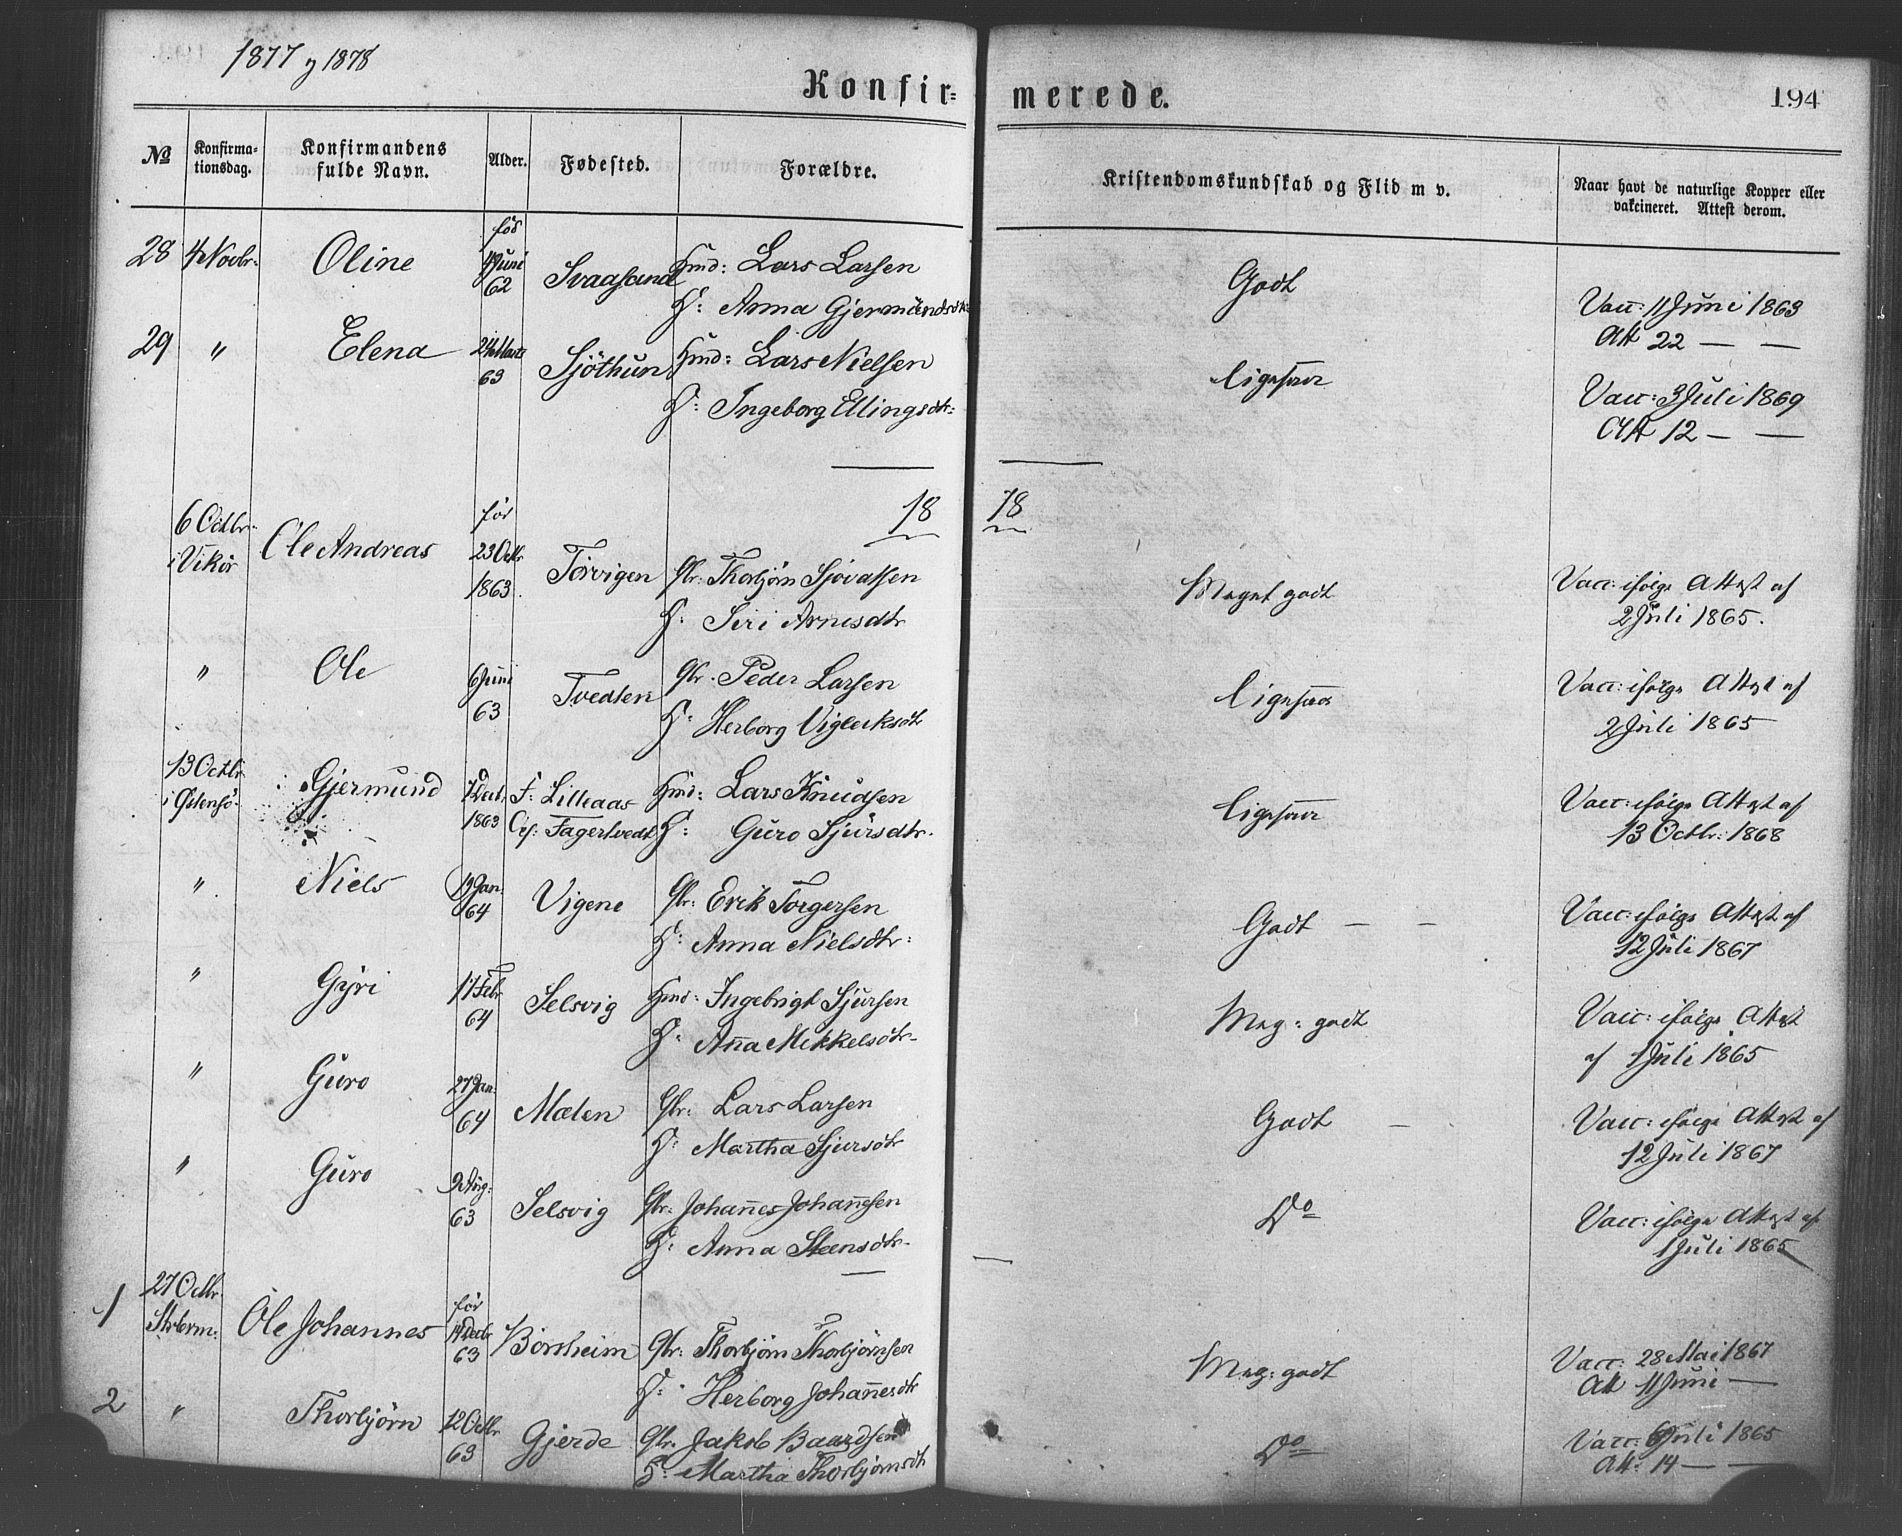 1877 og 1878
Konfirmerede.
194
№
Konfirmationsdag.
Konfirmandens fulde Navn.
Alder.
Fødested.
Forældre.
Kristendomskundskab og Flid m v.
Naar havt de naturlige Kopper eller vakcineret. Attest derom.
28 4 Novbr. Oline før 4 Juni 62 Svaasand Hmd: Lars Larsen Godt Vacc: 11 Juni 1863
H: Anna Gjermundsdtr Att 22 — —
29 " Elena 24 Marts 63 Sjöthun Hmd: Lars Nielsen Ligesaa Vacc: 3 Juli 1869
H: Ingeborg Ellingsdtr: Att 12 — —
18 78
6 Octbr. i Vikör Ole Andreas før 23 Octbr 1863. Torvigen Gbr: Thorbjörn Sjovatsen Meget godt Vacc: ifölge Attest af
H: Siri Arnesdtr 2 Juli 1865.
" Ole 6 Juni 63 Tvedten Gbr. Peder Larsen Ligesaa Vacc: ifölge Attest af
H: Herborg Vigleiksdtr 2 Juli 1865
13 Octbr i Östensö Gjermund 7 Decb. 1863 F: Lilleaas Hmd: Lars Knudsen Ligesaa Vacc: ifölge Attest af
Op: Fagertvedt H: Guro Sjursdtr. 13 Octbr: 1868
" Niels 19 Jan: 64 Vigene Gbr: Erik Torgersen Godt — — Vacc: ifölge Attest af
H: Anna Nielsdtr: 12 Juli 1867
" Gyri 17 Febr 64 Selsvig Hmd: Ingebrigt Sjursen Meg: godt Vacc: ifölge Attest
H: Anna Mikkelsdtr. af 1 Juli 1865
" Guro 27 Jan. 64 Mælen Gbr: Lars Larsen Godt — Vacc: ifölge Attest af
H: Martha Sjursdtr 12 Juli 1867
" Guro 9 Aug: 63 Selsvig Gbr: Johannes Johannesen Do Vacc: ifölge Attest af
H: Anna Steensdtr. 1 Juli 1865
1 27 Octbr. Strbrm: Ole Johannes før 14 Decbr 63 Borsheim Gbr: Thorbjörn Thorbjörnsen Meg: godt Vacc: 28 Mai 1867
H: Herborg Johannesdtr Att 11 Juni —
2 " Thorbjörn 12 Octbr 63 Gjerde Gbr. Jakob Baardsen Do Vacc: 6 Juli 1865
H: Martha Thorbjörnsdtr Att: 14 — —